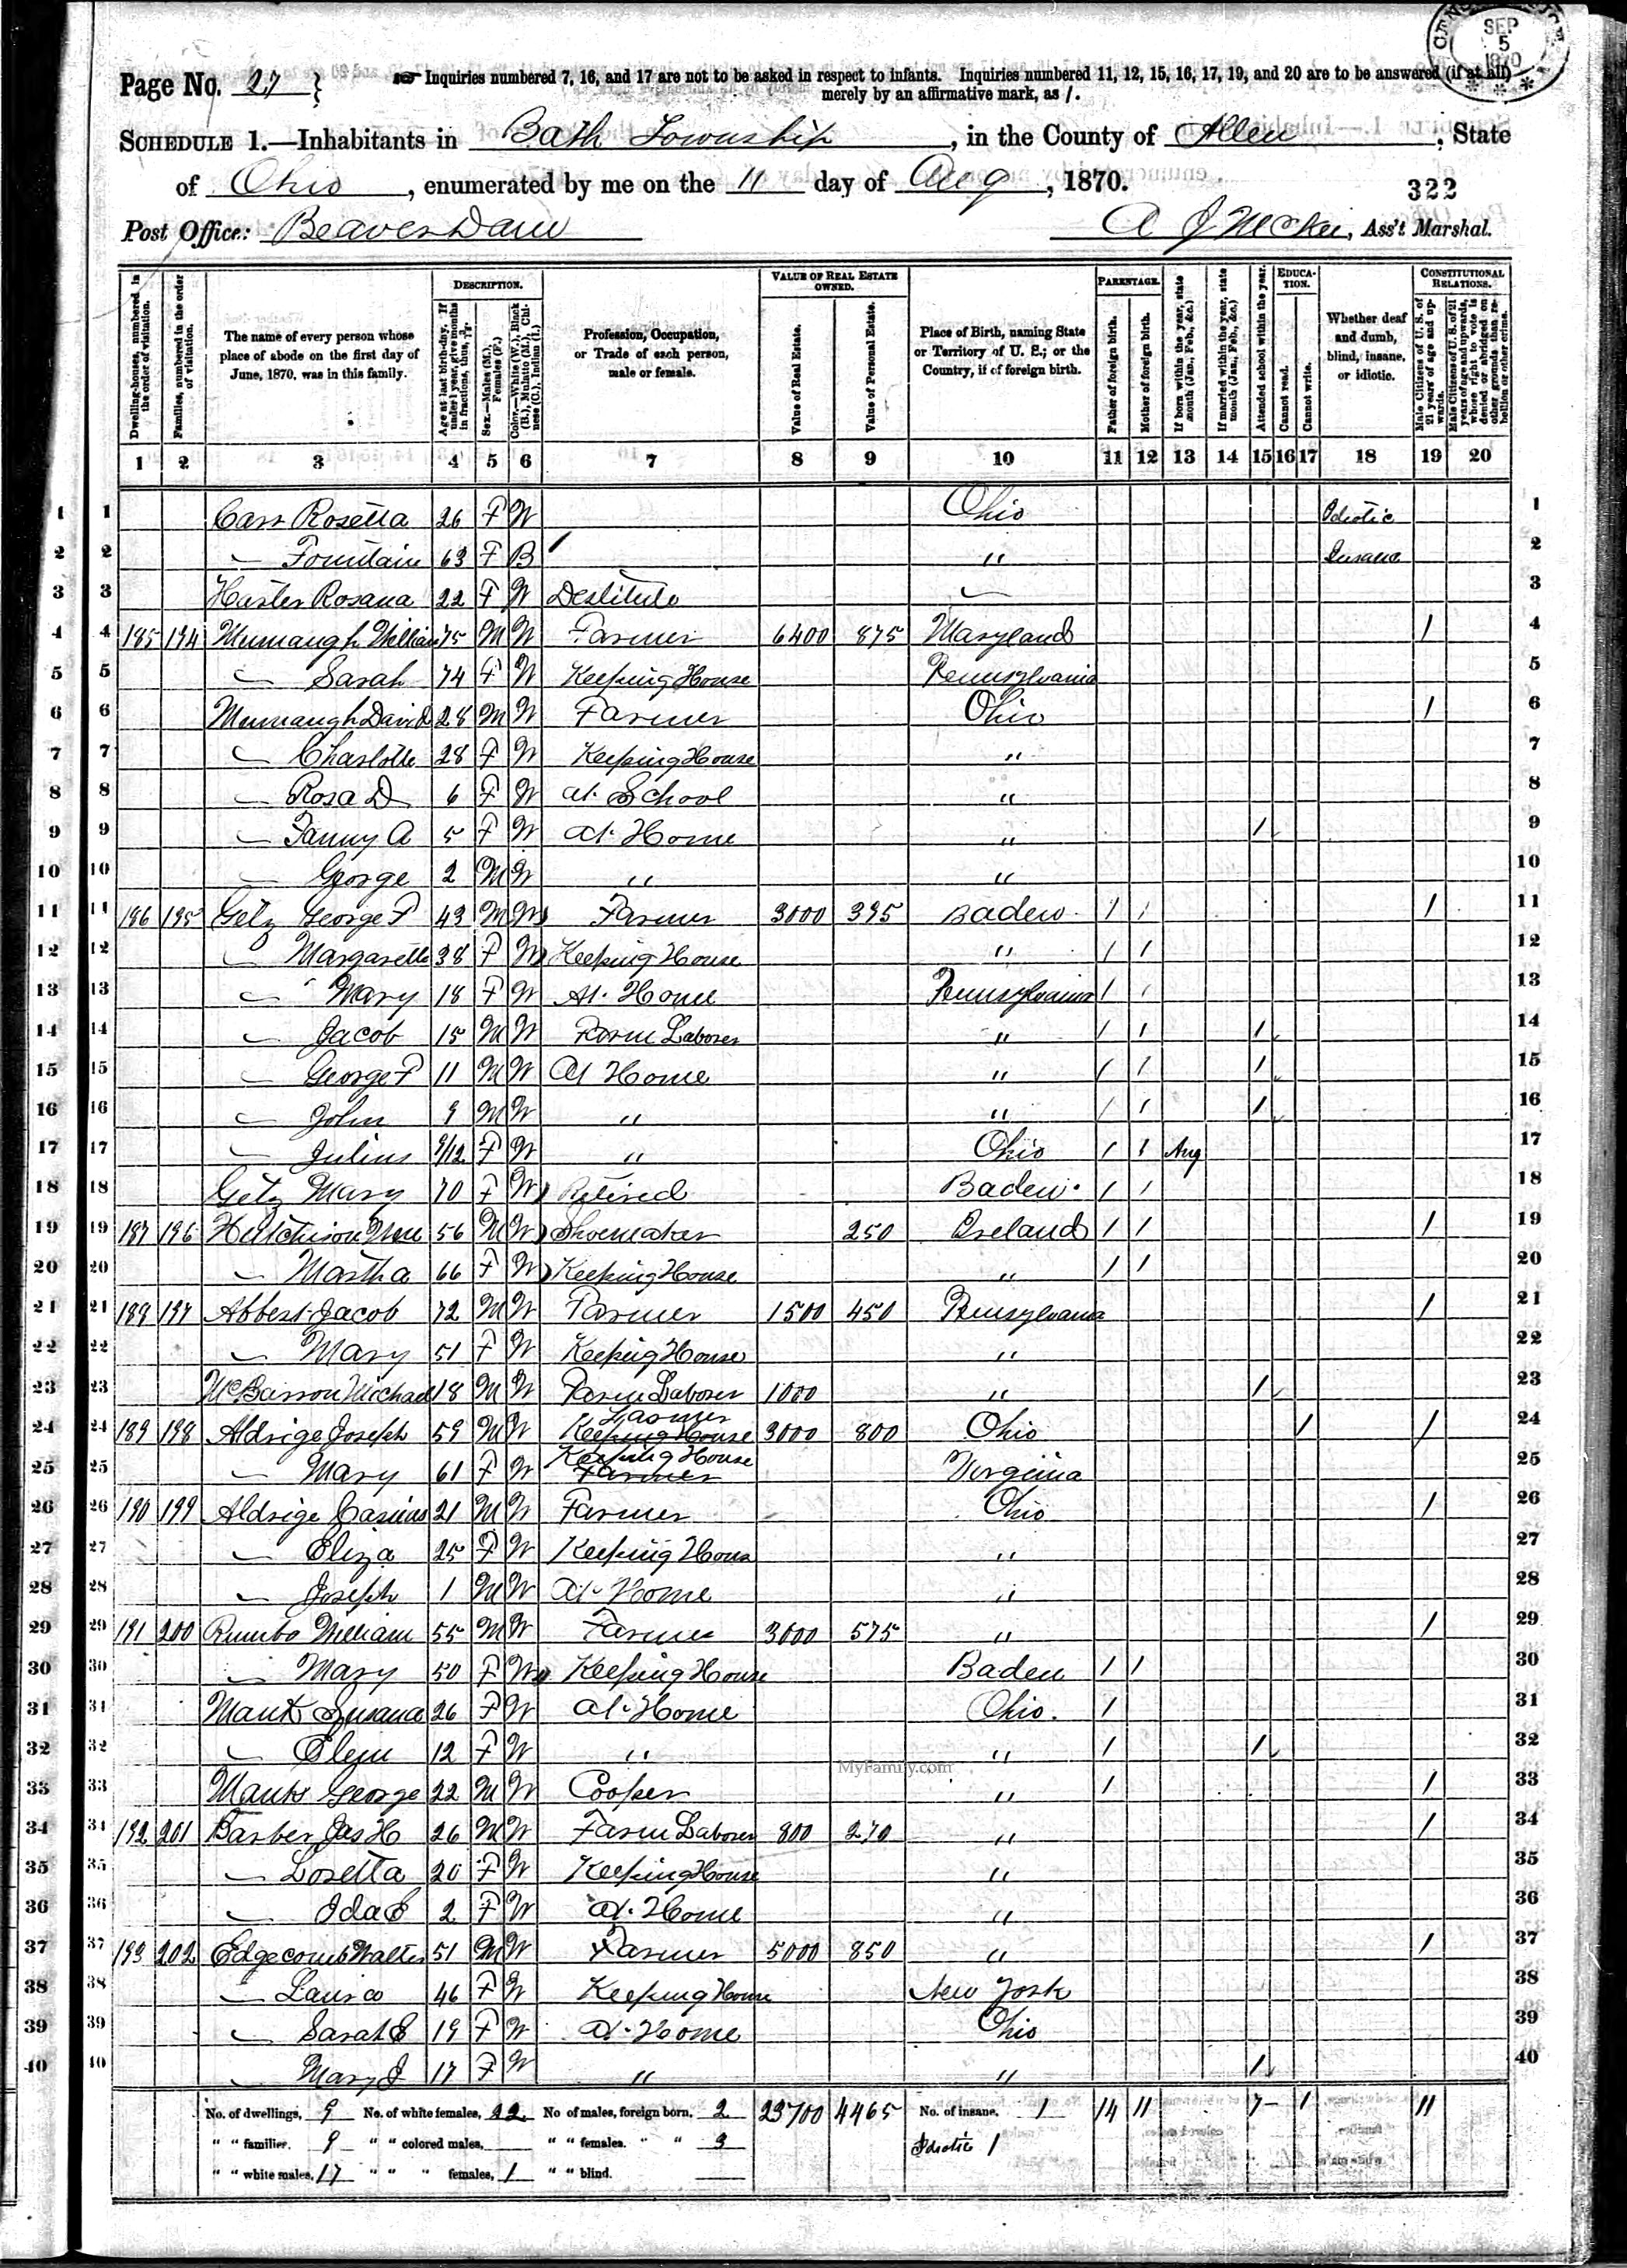 SEP
5
1870
Page No. 27 } Inquiries numbered 7, 16, and 17 are not to be asked in respect to infants. Inquiries numbered 11, 12, 15, 16, 17, 19, and 20 are to be answered (if at all)
merely by an affirmative mark, as /.
SCHEDULE 1.—Inhabitants in Bath Township, in the County of Allen, State
of Ohio, enumerated by me on the 11 day of Aug, 1870.
322
Post Office: Beaver Dam
A J McKee, Ass't Marshal.
Dwelling-houses, numbered in the order of visitation.
Families, numbered in the order of visitation.
The name of every person whose place of abode on the first day of June, 1870, was in this family.
DESCRIPTION.
Age at last birth-day. If under 1 year, give months in fractions, thus, 3/12.
Sex.—Males (M.), Females (F.)
Color.—White (W.), Black (B.), Mulatto (M.), Chinese (C.), Indian (I.)
Profession, Occupation, or Trade of each person, male or female.
VALUE OF REAL ESTATE OWNED.
Value of Real Estate.
Value of Personal Estate.
Place of Birth, naming State or Territory of U. S.; or the Country, if of foreign birth.
PARENTAGE.
Father of foreign birth.
Mother of foreign birth.
If born within the year, state month (Jan., Feb., &c.)
If married within the year, state month (Jan., Feb., &c.)
Attended school within the year.
EDUCATION.
Cannot read.
Cannot write.
Whether deaf and dumb, blind, insane, or idiotic.
CONSTITUTIONAL RELATIONS.
Male Citizens of U. S. of 21 years of age and upwards.
Male Citizens of U. S. of 21 years of age and upwards, whose right to vote is denied or abridged on other grounds than rebellion or other crime.
1 2 3 4 5 6 7 8 9 10 11 12 13 14 15 16 17 18 19 20
1 1 Carr Rosetta 26 F W Ohio Idiotic 1
2 2 — Fountain 63 F B " Insane 2
3 3 Harter Rosana 22 F W Destitute — 3
4 4 185 194 Mumaugh William 75 M W Farmer 6400 875 Maryland / 4
5 5 — Sarah 74 F W Keeping House Pennsylvania 5
6 6 Mumaugh David 28 M W Farmer Ohio / 6
7 7 — Charlotte 28 F W Keeping House " 7
8 8 — Rosa D 6 F W at School " 8
9 9 — Fanny A 5 F W at Home " / 9
10 10 — George 2 M W " " 10
11 11 186 195 Getz George F 43 M W Farmer 3000 395 Baden / / / 11
12 12 — Margarette 38 F W Keeping House " / / 12
13 13 — Mary 18 F W At Home Pennsylvania / / 13
14 14 — Jacob 15 M W Farm Laborer " / / / 14
15 15 — George F 11 M W At Home " / / / 15
16 16 — John 9 M W " " / / / 16
17 17 — Julius 9/12 F W " Ohio / / Aug 17
18 18 Getz Mary 70 F W Retired Baden / / 18
19 19 187 196 Hutchison Wm 56 M W Shoemaker 250 Ireland / / / 19
20 20 — Martha 66 F W Keeping House " / / 20
21 21 188 197 Abbert Jacob 72 M W Farmer 1500 450 Pensylvana / 21
22 22 — Mary 51 F W Keeping House " 22
23 23 McBarron Michael 18 M W Farm Laborer 1000 " / 23
24 24 189 198 Aldrige Joseph 59 M W Farmer Keeping House 3000 800 Ohio / / 24
25 25 — Mary 61 F W Keeping House Farmer Virginia 25
26 26 190 199 Aldrige Casius 21 M W Farmer Ohio / 26
27 27 — Eliza 25 F W Keeping Hous " 27
28 28 — Joseph 1 M W at Home " 28
29 29 191 200 Rumbo William 55 M W Farmer 3000 575 " / 29
30 30 — Mary 50 F W Keeping House Baden / / 30
31 31 Mank Susana 26 F W at Home Ohio. / 31
32 32 — Elen 12 F W " " / / 32
33 33 Mank George 22 M W Cooper " / / 33
34 34 192 201 Barber Jas H 26 M W Farm Laborer 800 270 " / 34
35 35 — Losetta 20 F W Keeping House " 35
36 36 — Ida E 2 F W at Home " 36
37 37 193 202 Edgecomb Walter 51 M W Farmer 5000 850 " / 37
38 38 — Laura 46 F W Keeping House New York 38
39 39 — Sarah E 19 F W at Home Ohio 39
40 40 — Mary J 17 F W " " / 40
MyFamily.com
No. of dwellings, 9 No. of white females, 22 No of males, foreign born, 2 23700 4465 No. of insane, 1 14 11 7 1 11
" " families, 9 " " colored males, " " females, " " 3 Idiotic 1
" " white males, 17 " " " females, 1 " " blind.